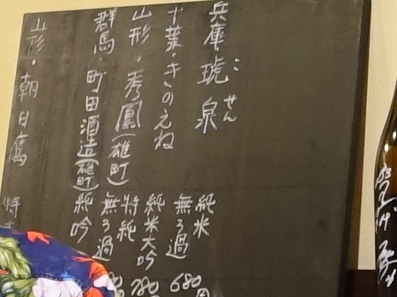 兵庫・琥泉 こせん 純米 無ろ過 680
千葉・きのえね 純米大吟 780
山形・秀鳳(雄町) 特純 無ろ過
群馬・町田酒造(雄町) 純吟
山形・朝日鷹 特